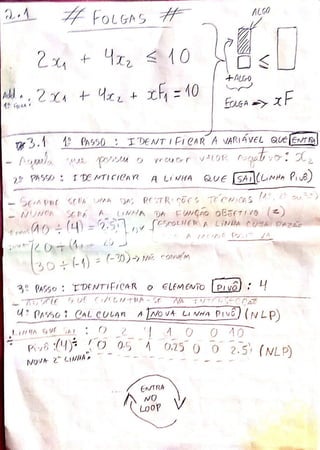 2.1 # FOLGAS #
ALGO
2x1 + 4x2 ≤ 10
≤
+ALGO
Add.
2x1 + 4x2 + xF1 = 10
FOLGA → xF
3.1 1º PASSO: IDENTIFICAR A VARIÁVEL QUE ENTRA
- Aquela que possui o maior valor negativo: x2
2º PASSO: IDENTIFICAR A LINHA QUE SAI (LINHA PIVÔ)
- SEMPRE SERÁ UMA DAS RESTRIÇÕES TÉCNICAS
- NUNCA SERÁ A LINHA DA FUNÇÃO OBJETIVO (Z)
(10 ÷ (4) = 2.5)
ESCOLHER A LINHA CUJA RAZÃO
30 ÷ (-1) = (-30) → Não convém
3º PASSO: IDENTIFICAR O ELEMENTO PIVÔ: 4
4º PASSO: CALCULAR A NOVA LINHA PIVÔ (NLP)
LINHA QUE SAI: 0 2 4 1 0 0 10
÷ PIVÔ: (4): 0 0.5 1 0.25 0 0 2.5 (NLP)
NOVA 2ª LINHA
ENTRA
NO
LOOP